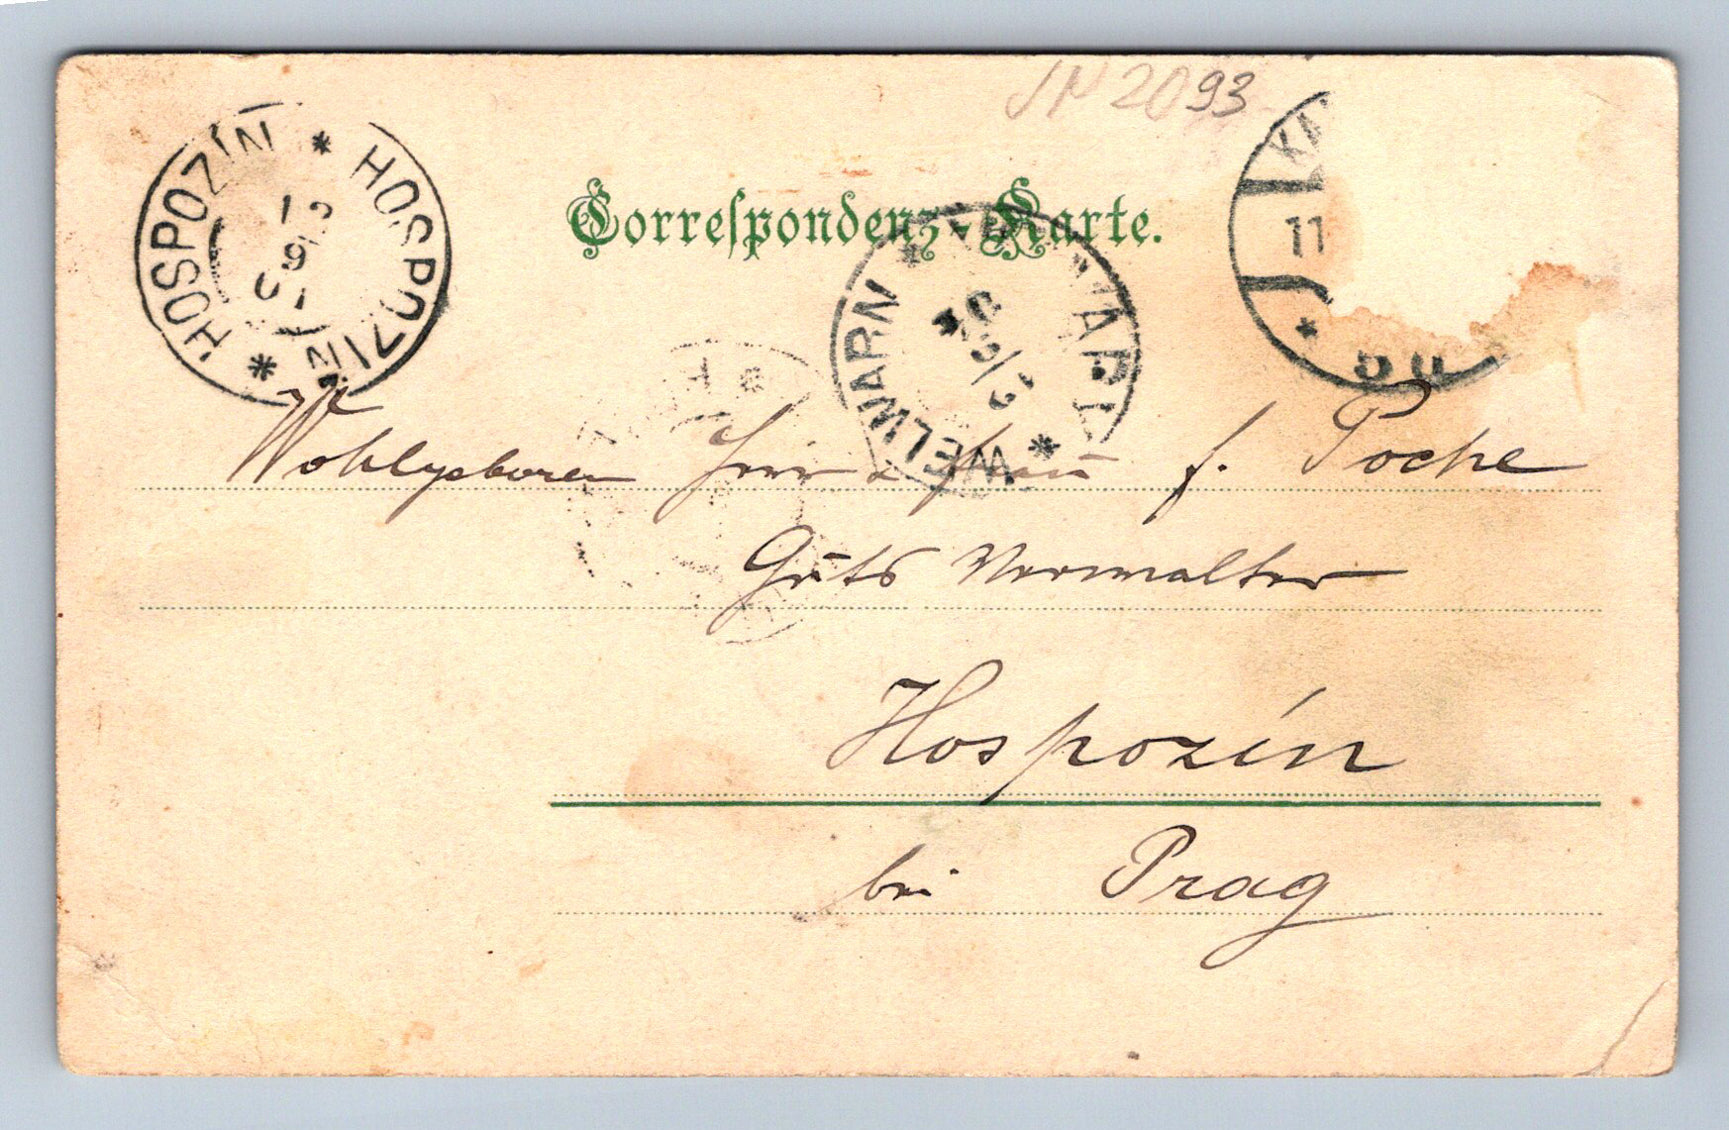 JN 2093
HOSPOZÍN * HOSPOZÍN *
Correspondenz-Karte.
WELWARN *
11
50
Wohlgeboren Herr & Frau J. Poche
Guts Verwalter
Hospozín
bei Prag